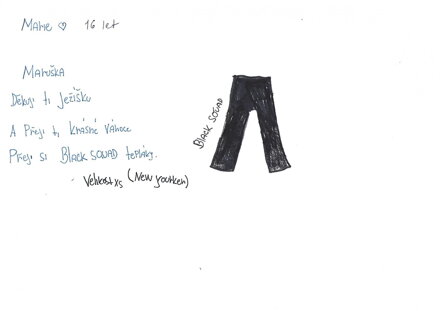 Marie ♡ 16 let
Maruška
Děkuji ti Ježíšku
A Přeji ti Krásné Vánoce
Přeji si Black SQUAD tepláky.
Velikost XS (New Yorker)
Black SQUAD